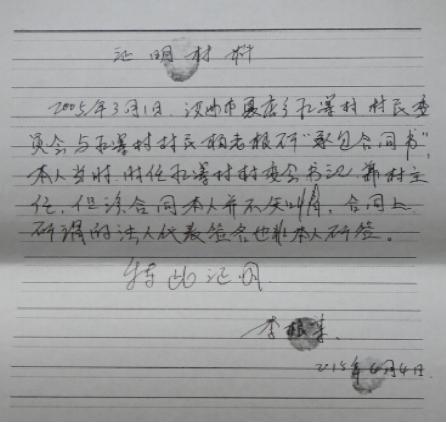 证明材料
2005年3月1日,汝州市 店乡 村村民委
员会与 村村民 老根 "承包合同书",
本人当时时任 村村委会书记兼村主
任,但该合同本人并不知情,合同上
所谓的法人代表签名也非本人所签。
特此证明
李根
2015年6月4日.